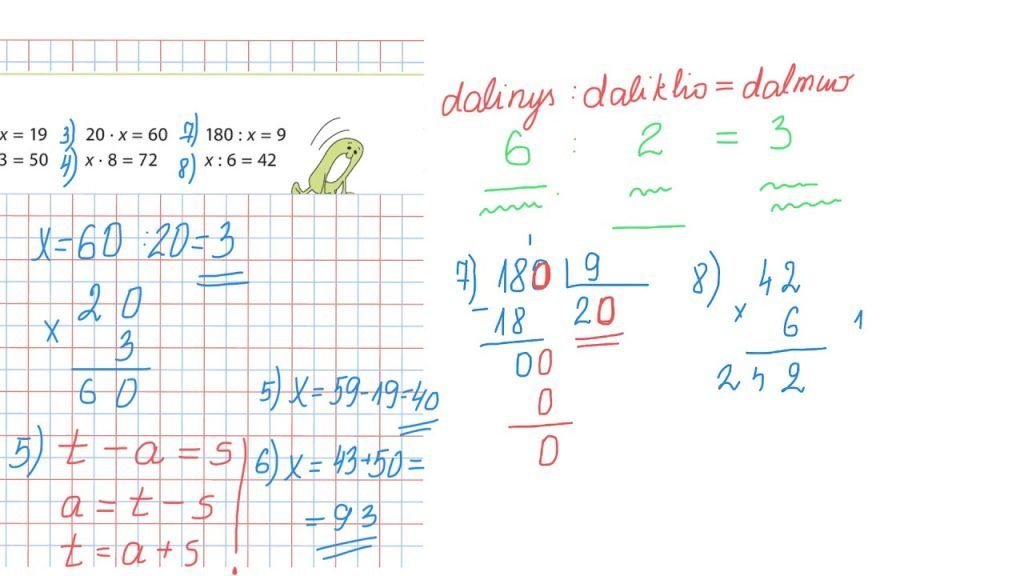 x = 19 3) 20 · x = 60 7) 180 : x = 9
3 = 50 4) x · 8 = 72 8) x : 6 = 42
x = 60 : 20 = 3
2 0
x 3
6 0
5) x = 59 - 19 = 40
5) t - a = s
a = t - s
t = a + s
6) x = 43 + 50 =
= 93
dalinys : daliklio = dalmuo
6 : 2 = 3
1
7) 180 9
- 18 20
00
0
0
8) 42
x 6 1
2 5 2